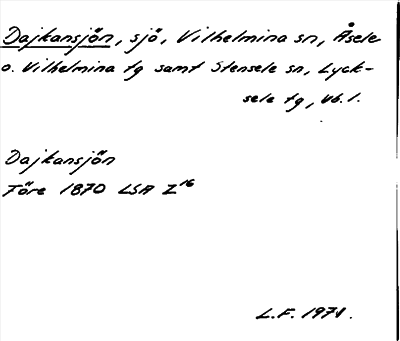 Dajkansjön, sjö, Vilhelmina sn, Åsele
o. Vilhelmina tg samt Stensele sn, Lyck-
sele tg, Vb.l.
Dajkansjön
Före 1870 LSA Z¹⁶
L.F. 1971.